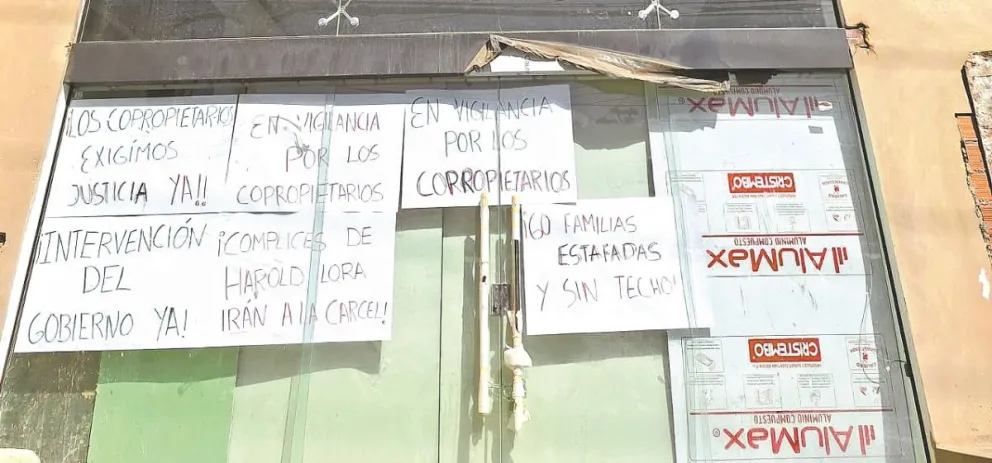 ¡LOS COPROPIETARIOS
EXIGIMOS
JUSTICIA YA!!
EN VIGILANCIA
POR LOS
COPROPIETARIOS
EN VIGILANCIA
POR LOS
CORPROPIETARIOS
¡INTERVENCIÓN
DEL
GOBIERNO YA!
¡COMPLICES DE
HAROLD LORA
IRÁN A LA CARCEL!
¡60 FAMILIAS
ESTAFADAS
Y SIN TECHO!
AluMax
ALUMINIO COMPUESTO
CRISTEMBO
AluMax
ALUMINIO COMPUESTO
CRISTEMBO
AluMax
ALUMINIO COMPUESTO